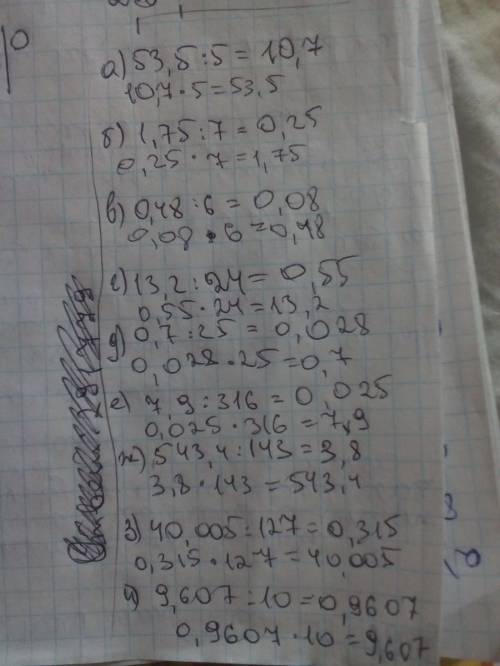 а) 53,5 : 5 = 10,7
10,7 · 5 = 53,5
б) 1,75 : 7 = 0,25
0,25 · 7 = 1,75
в) 0,48 : 6 = 0,08
0,08 · 6 = 0,48
г) 13,2 : 24 = 0,55
0,55 · 24 = 13,2
д) 0,7 : 25 = 0,028
0,028 · 25 = 0,7
е) 7,9 : 316 = 0,025
0,025 · 316 = 7,9
ж) 543,4 : 143 = 3,8
3,8 · 143 = 543,4
з) 40,005 : 127 = 0,315
0,315 · 127 = 40,005
и) 9,607 : 10 = 0,9607
0,9607 · 10 = 9,607